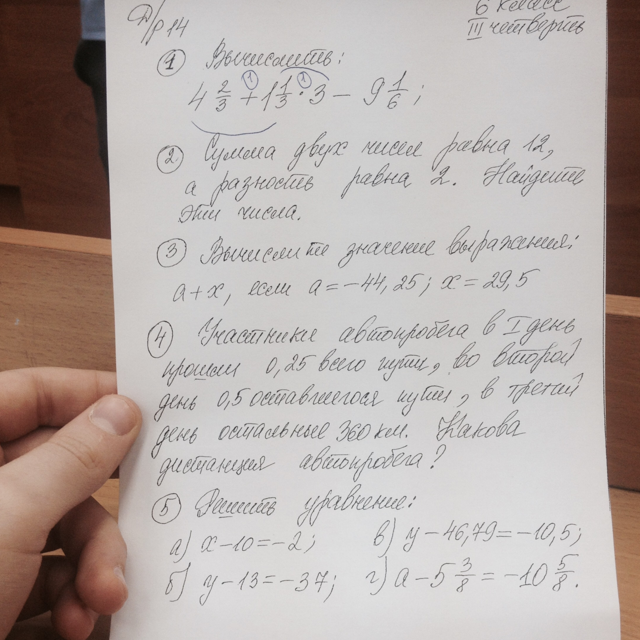 Д/р 14
6 класс
III четверть
① Вычислить:
4 2/3 + 1 1/3 · 3 − 9 1/6;
② Сумма двух чисел равна 12,
а разность равна 2. Найдите
эти числа.
③ Вычислите значение выражения:
a+x, если a=−44,25; x=29,5
④ Участники автопробега в I день
прошли 0,25 всего пути, во второй
день 0,5 оставшегося пути, в третий
день остальные 360 км. Какова
дистанция автопробега?
⑤ Решить уравнение:
а) x−10=−2; в) y−46,79=−10,5;
б) y−13=−37; г) a−5 3/8=−10 5/8.